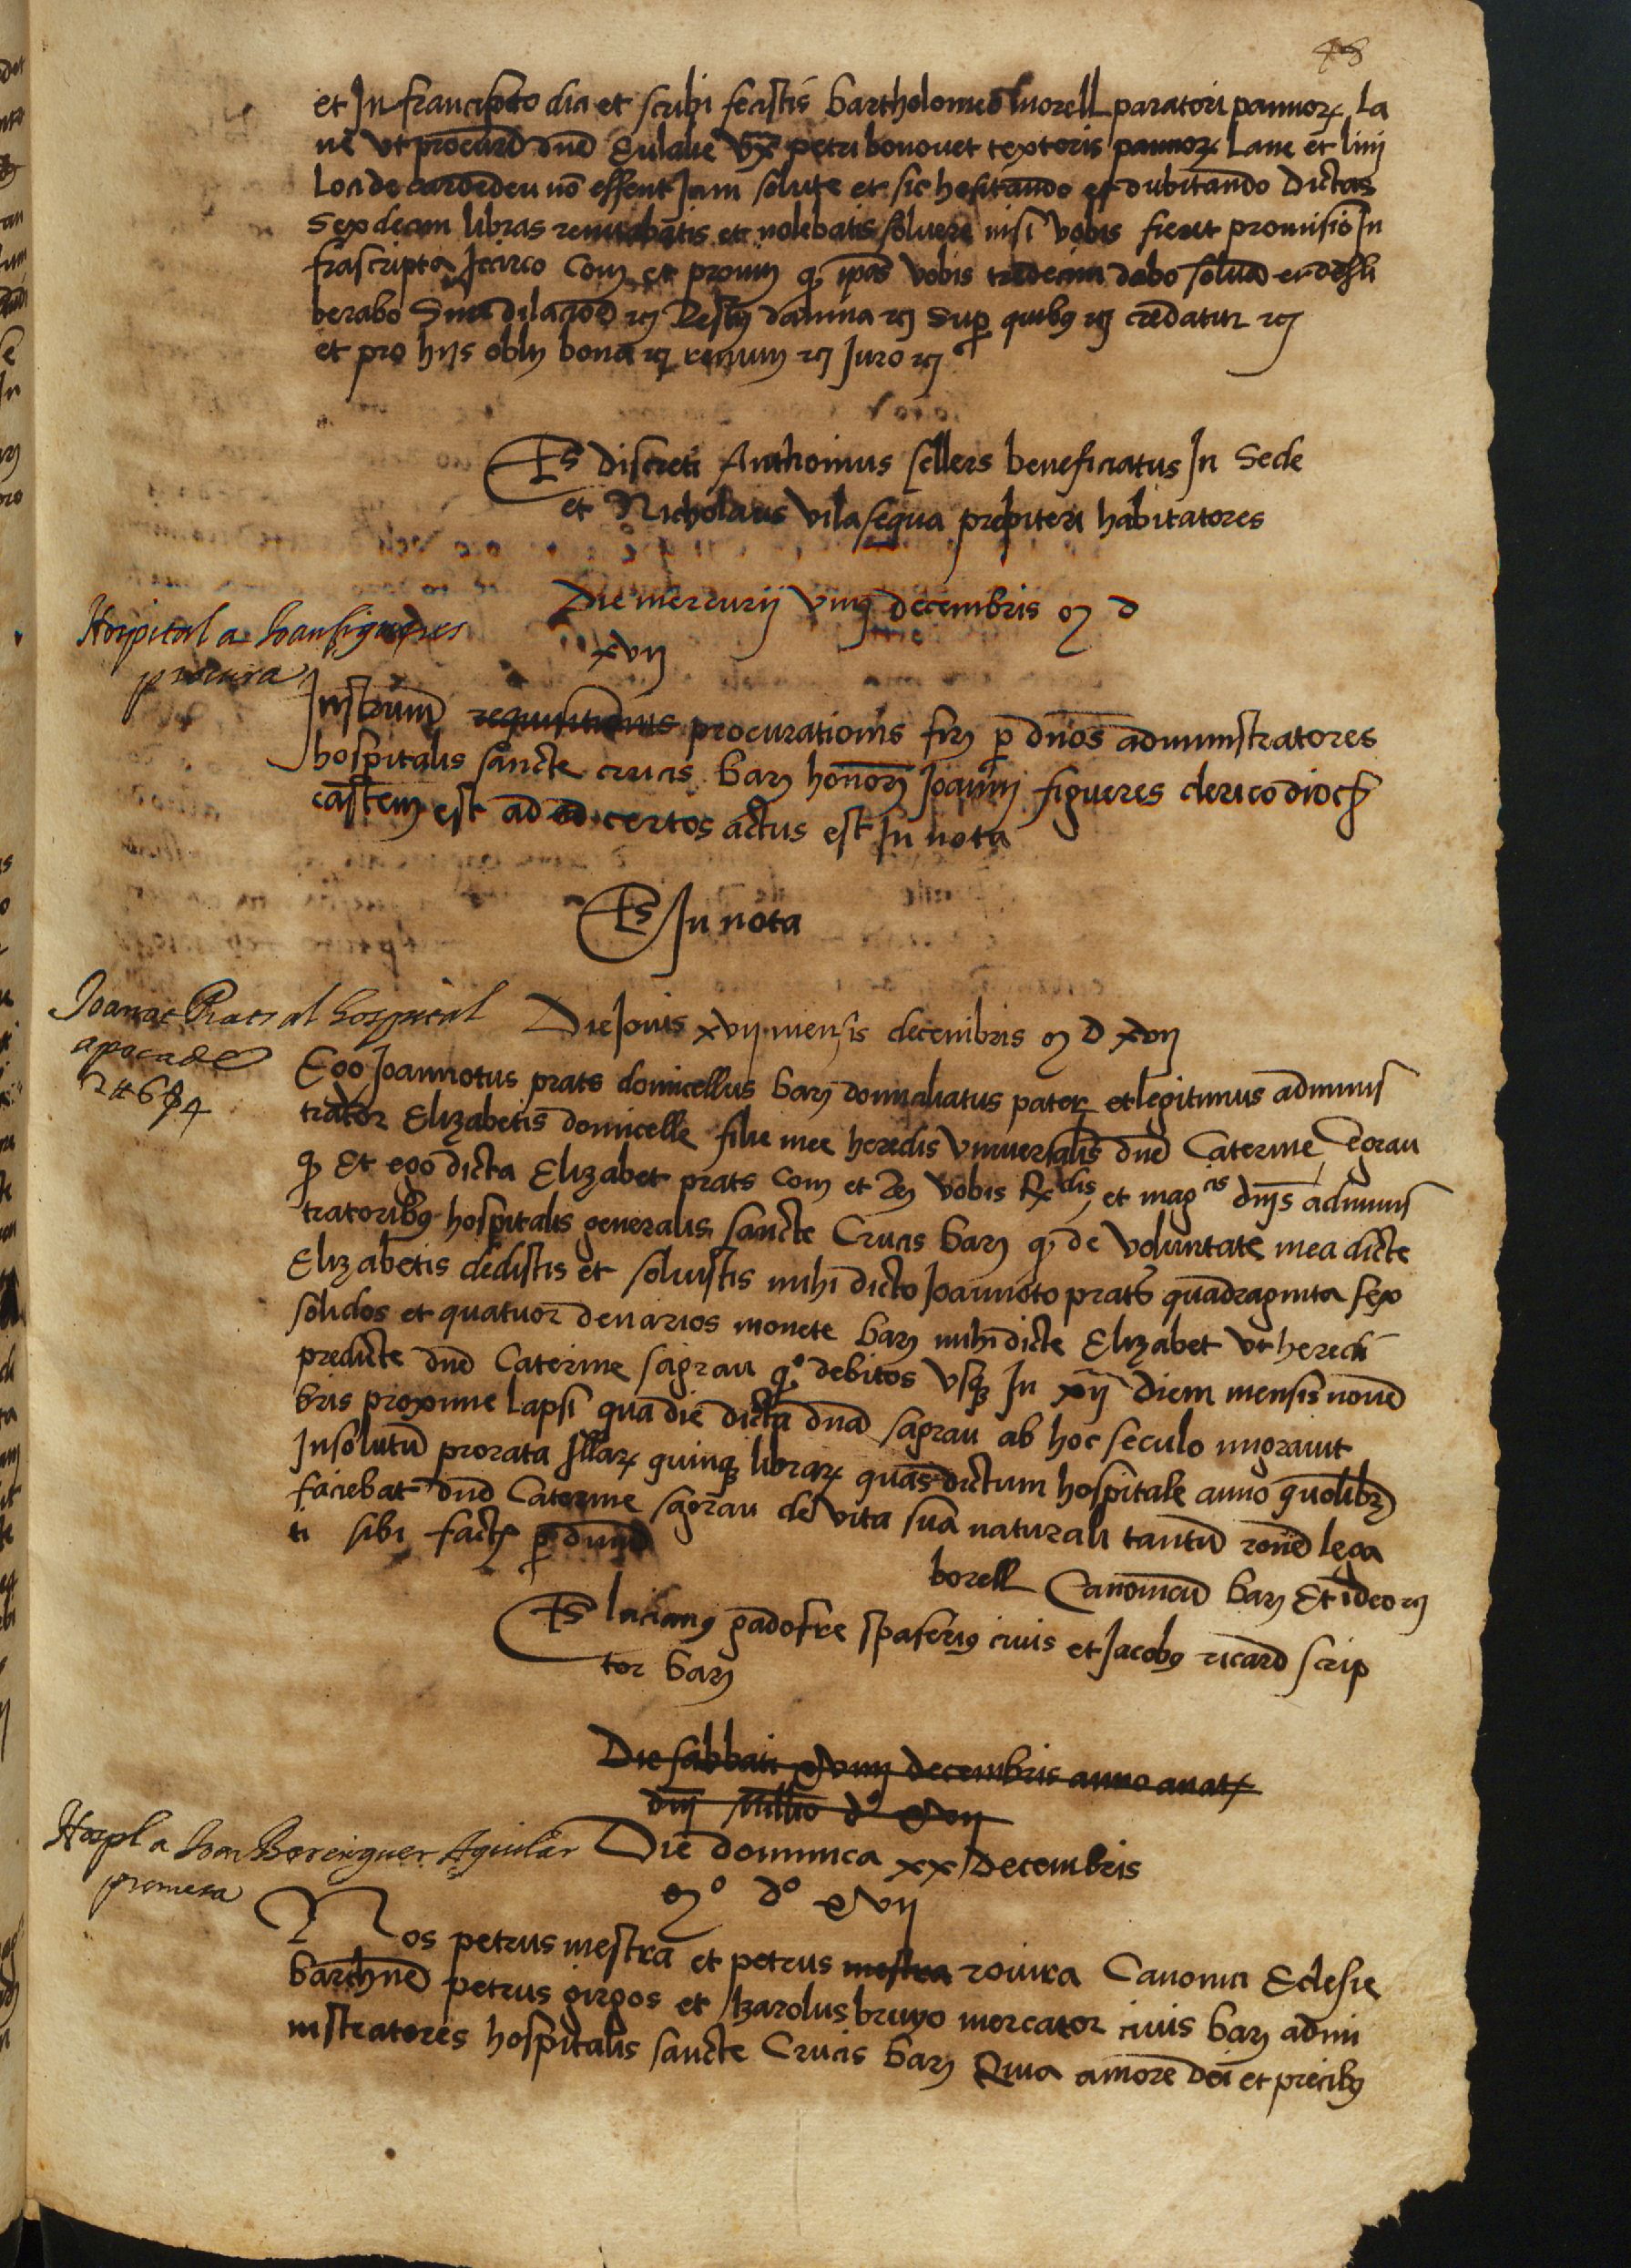 48
et Infrascripto dia et scribi fecistis bartholomeo morell paratori pannorꝝ la
ne vt procurad dne Eulalie vx̅ petri bonouet textoris pannorꝝ lane et linj
loci de cardedeu nō essent Jam solute et sic hesitando et dubitando dictas
sexdecim libras renuebatis et nolebatis soluere nisi vobis fieret promisio In
frascripta Jcirco Conꝫ et promꝫ ipas vobis dabo soluā
berabo Sine dilacioē rꝫ Restꝫ damna rꝫ Sup quibꝫ rꝫ credatur rꝫ
et pro hijs oblꝫ bona rꝫ renunꝫ rꝫ Juro rꝫ
Ts discreti Anthonius sellers beneficiatus In Sede
et Nicholaus vilasequa prēpiteri habitatores
Die mercurij decembris ꝫ d
xvij
Hospital a Joan figueres
procura
Instrumē requisitionis procurationis firꝫ p dnōs administratores
hospitalis sancte crucis barꝫ honorꝫ Joannj figueres clerico dioc
est ad ad certos actus est In nota
Ts In nota
Joanot Prats al hospital
apoca de
2 ₶ 6 ẞ 4
Die Jouis xvij mensis decembris ꝫ d xvij
Ego Joannotus prats domicellus barꝫ domiciliatus pater et legitimus adminis
trator Elizabetis domicelle filie mee heredis vniuersalis dne Caterine Segrau
qꝫ Et ego dicta Elizabet prats Conꝫ et Rꝫ vobis Rx dis et mag cis dnjs adminis
tratoribꝫ hospitalis generalis sancte Crucis barꝫ qꝫ de voluntate mea dicte
Elizabetis dedistis et soluistis mihi dicto Joannoto prats quadraginta sex
solidos et quatuor denarios monete barꝫ mihi dicte Elizabet vt heredi
predicte dne Caterine sagrau qº debitos vsqꝫ In xij diem mensis nouē
bris proxime lapsi qua die dicta dnā sagrau ab hoc seculo migrauit
Insolutū prorata Illarꝝ quinqꝫ librarꝝ quas dictum hospitale anno quolibꝫ
faciebat dne Caterine sagrau de vita sua naturali tantū rōne lega
ti sibi factꝫ p dnm
borell Canonicū barꝫ Et ideo rꝫ
Ts lucianꝫ gadofre spaseriꝫ ciuis et Jacobꝫ ricard scrip
tor barꝫ
Die sabbati xviiij decembris anno a natꝫ
dnj Millᵒ dº xvij
Hospl a Joan Berenguer Aguilar
promesa
Die dominica xx decembris
ꝫº dº xvij
Nos petrus mestra et petrus mestra rouira Canonici Eclesie
barchne petrus girgos et karolus bruyo mercator ciuis barꝫ admi
nistratores hospitalis sancte Crucis barꝫ Quia amore dei et precibꝫ